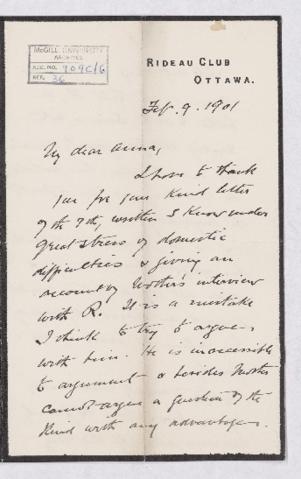 McGILL UNIVERSITY
ARCHIVES
ACC. NO. 909C/6
REF. 36
RIDEAU CLUB
OTTAWA.
Feb. 9. 1901
My dear Anna,
I have to thank
you for your kind letter
of the 7th, written I know under
great stress of domestic
difficulties & giving an
account of Mother's interview
with R. It is a mistake
I think to try to argue
with him. He is inaccessible
to argument & besides Mother
cannot argue a question of the
kind with any advantage.